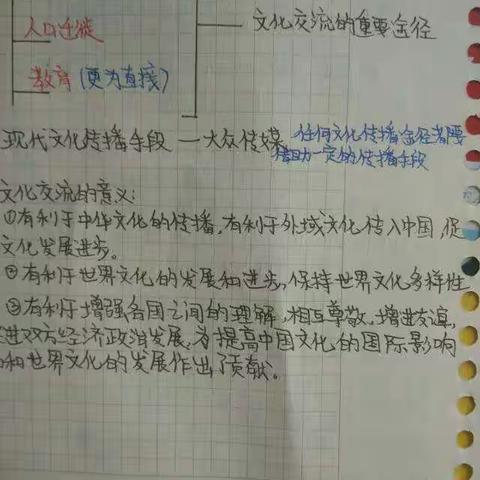 人口迁徙
文化交流的重要途径
教育(更为直接)
现代文化传播手段 — 大众传媒
任何文化传播途径都要
借助一定的传播手段
文化交流的意义:
①有利于中华文化的传播,有利于外域文化传入中国,促
文化发展进步。
②有利于世界文化的发展和进步,保持世界文化多样性
③有利于增强各国之间的理解,相互尊敬,增进友谊,
进双方经济政治发展,为提高中国文化的国际影响
和世界文化的发展作出了贡献。